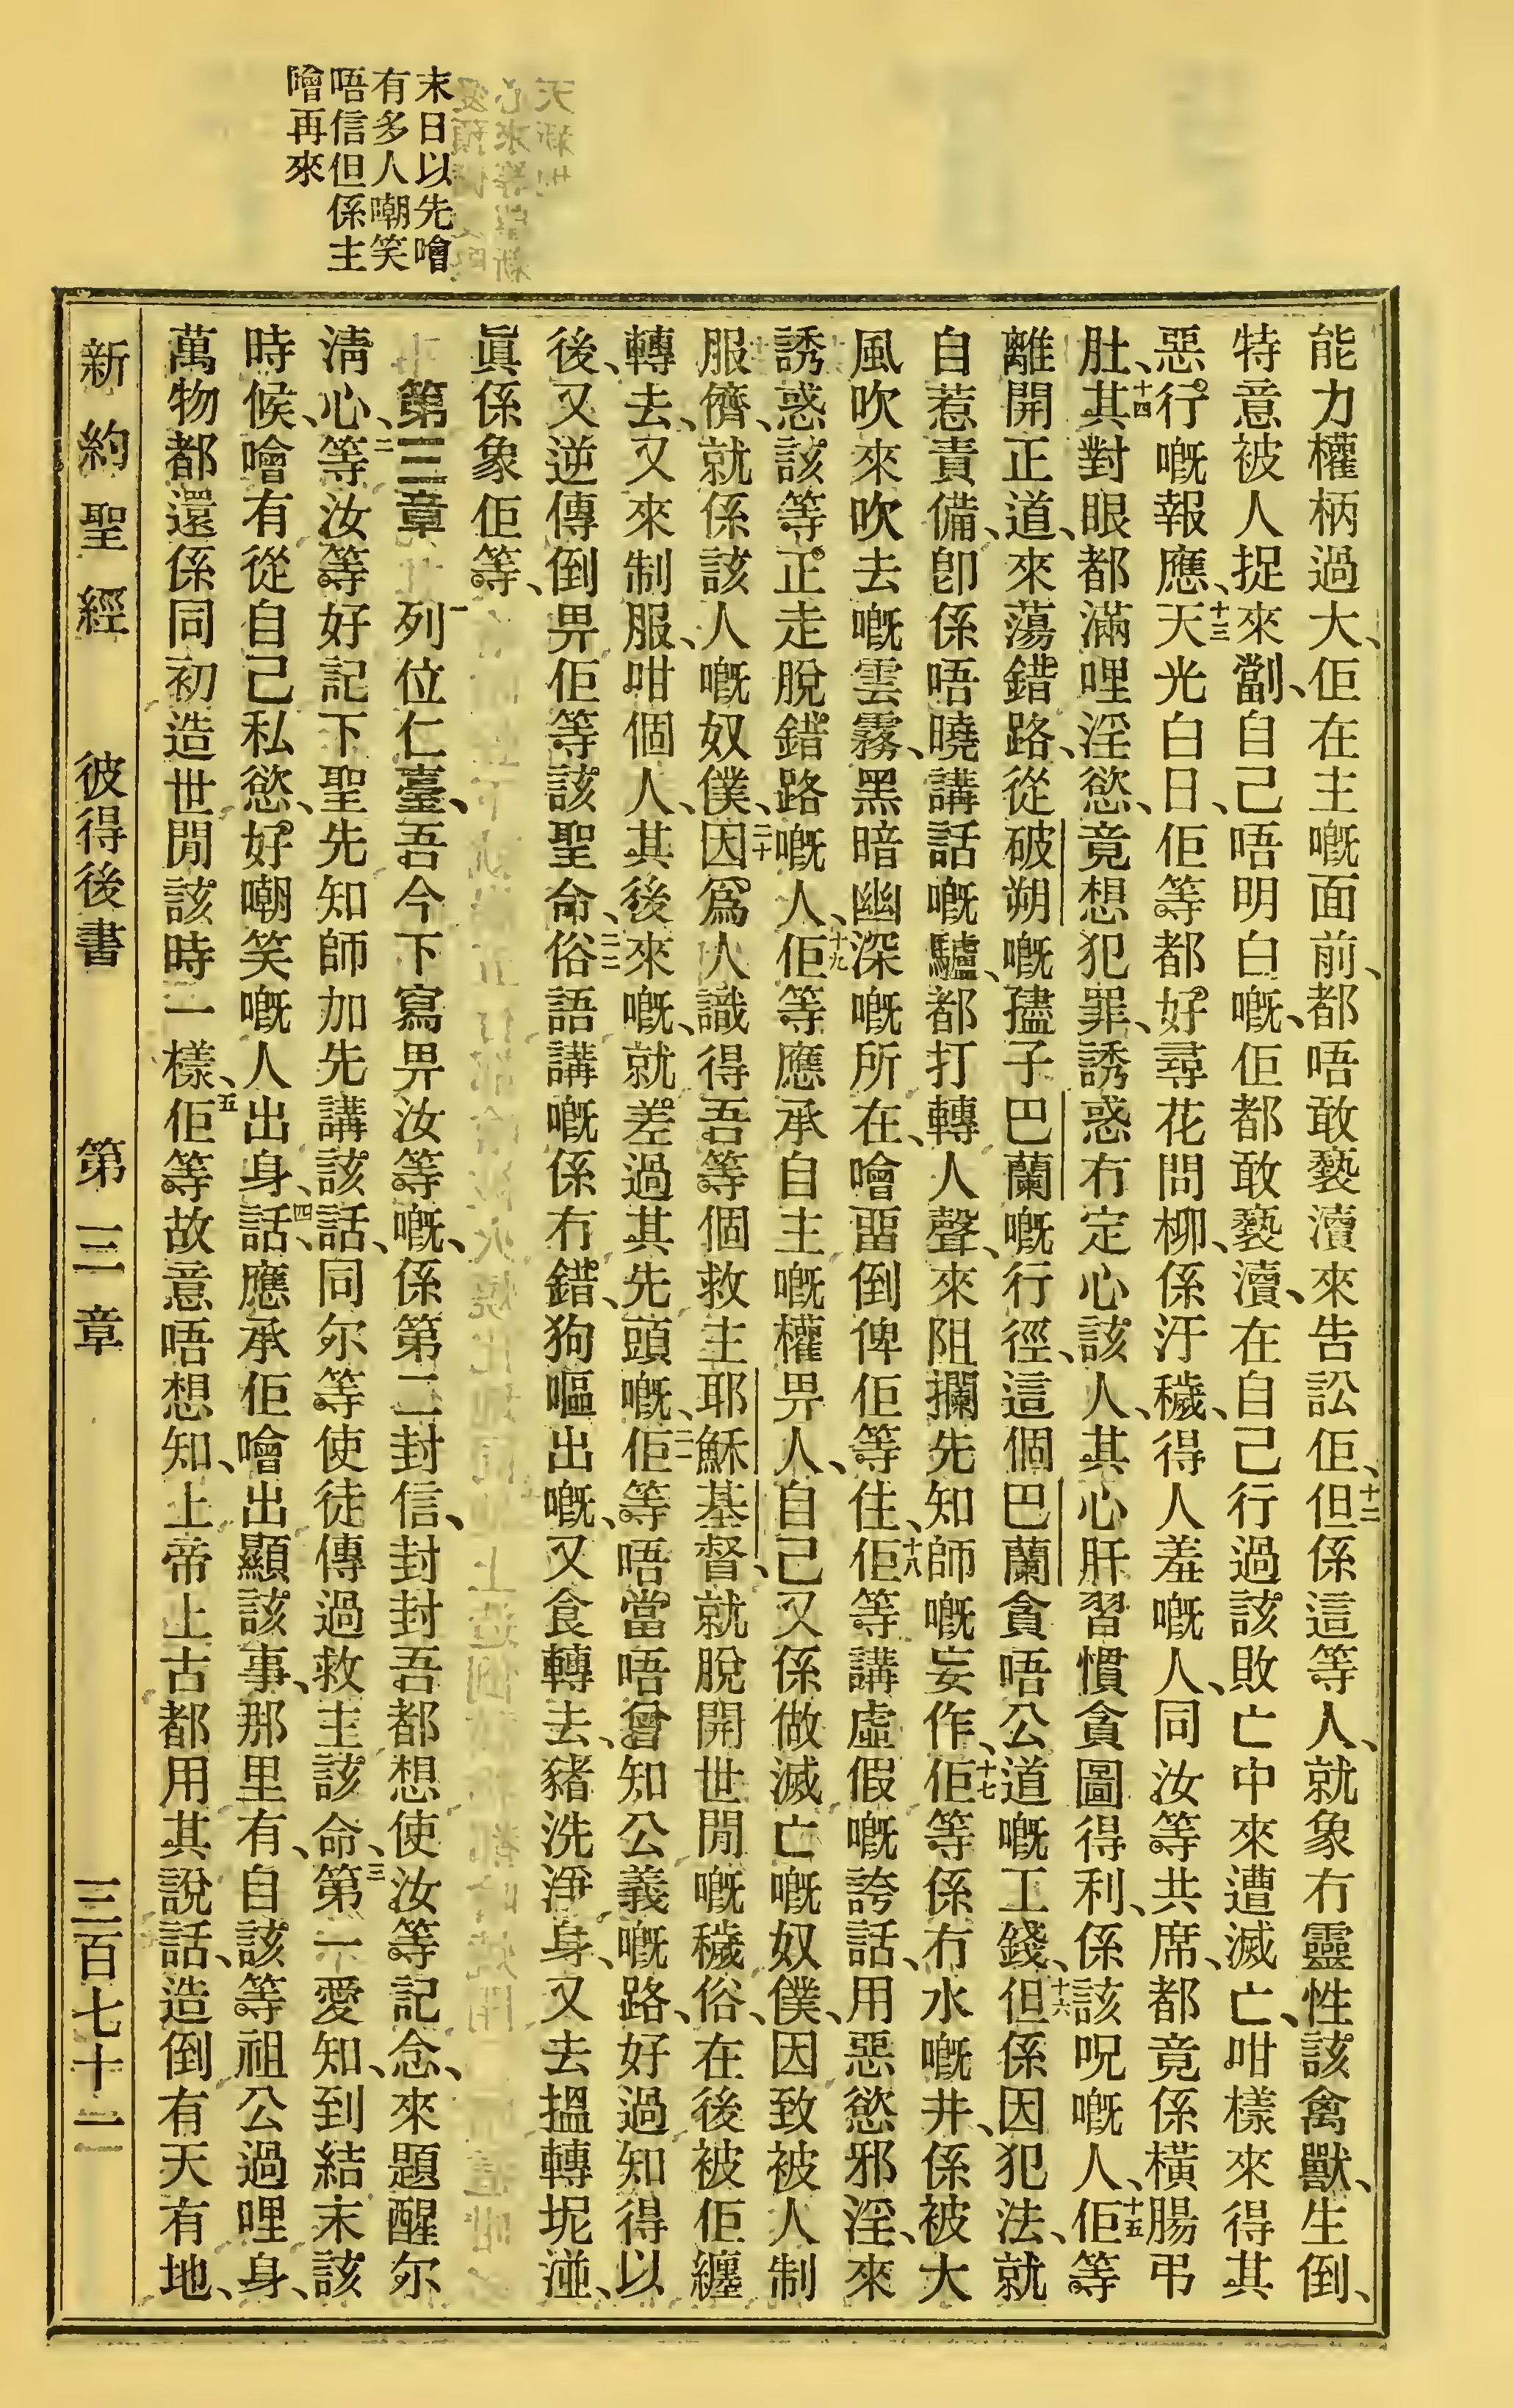 末日以先噲
有多人嘲笑
唔信但係主
噲再來
能力權柄過大、佢在主嘅面前、都唔敢褻瀆來告訟佢、十二但係這等人、就象冇靈性該禽獸、生倒、
特意被人捉來劏、自己唔明白嘅、佢都敢褻瀆、在自己行過該敗亡中來遭滅亡、咁樣來得其
惡行嘅報應、十三天光白日、佢等都好尋花問柳、係汙穢、得人羞嘅人、同汝等共席、都竟係橫腸弔
肚、十四其對眼都滿哩淫慾、竟想犯罪、誘惑冇定心該人、其心肝習慣貪圖得利、係該呪嘅人、十五佢等
離開正道、來蕩錯路、從破朔嘅孻子巴蘭嘅行徑、這個巴蘭貪唔公道嘅工錢、十六但係因犯法、就
自惹責備、卽係唔曉講話嘅驢、都打轉人聲、來阻攔先知師嘅妄作、十七佢等係冇水嘅井、係被大
風吹來吹去嘅雲霧、黑暗幽深嘅所在、噲畱倒俾佢等住、十八佢等講虛假嘅誇話、用惡慾邪淫、來
誘惑該等正走脫錯路嘅人、十九佢等應承自主嘅權畀人、自己又係做滅亡嘅奴僕、因致被人制
服儕、就係該人嘅奴僕、二十因爲人識得吾等個救主耶穌基督、就脫開世閒嘅穢俗、在後被佢纏
轉去、又來制服、咁個人、其後來嘅、就差過其先頭嘅、二一佢等唔當唔曾知公義嘅路、好過知得以
後、又逆傳倒畀佢等該聖命、二二俗語講嘅係冇錯、狗嘔出嘅、又食轉去、豬洗淨身、又去搵轉坭湴、
眞係象佢等、
第三章 一列位仁臺、吾今下寫畀汝等嘅、係第二封信、封封吾都想使汝等記念、來題醒尔
淸心、二等汝等好記下聖先知師加先講該話、同尔等使徒傳過救主該命、三第一愛知、到結末該
時候、噲有從自己私慾、好嘲笑嘅人出身、四話、應承佢噲出顯該事、那里有、自該等祖公過哩身、
萬物都還係同初造世閒該時一樣、五佢等故意唔想知、上帝上古都用其說話、造倒有天有地、
新約聖經 彼得後書 第三章 三百七十一